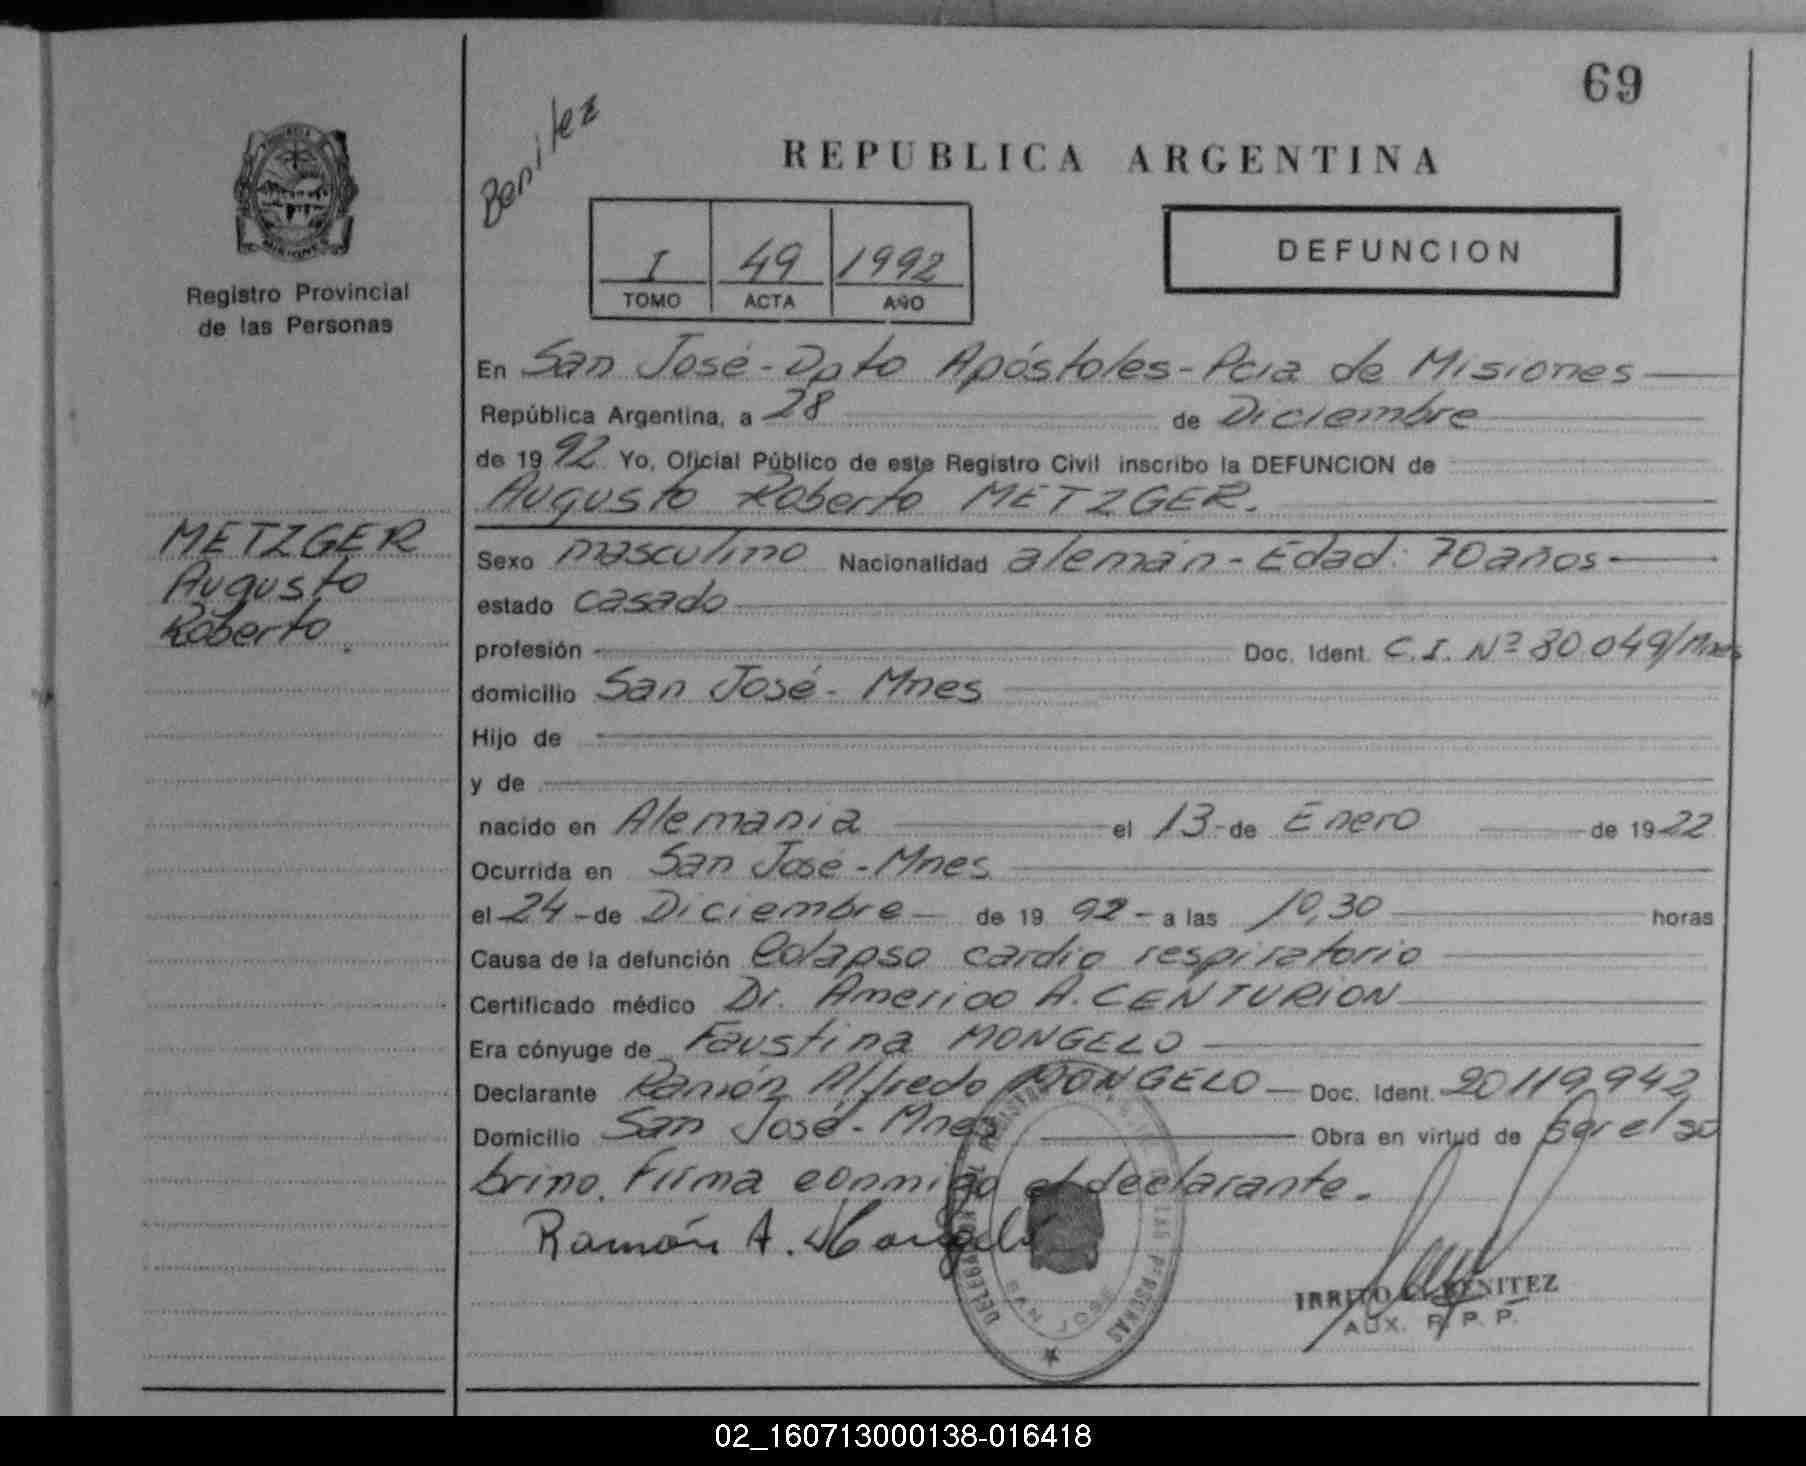 69
Benitez
REPUBLICA ARGENTINA
I 49 1992
TOMO ACTA AÑO
DEFUNCION
Registro Provincial
de las Personas
En San José - Dpto Apóstoles - Pcia de Misiones
República Argentina, a 28 de Diciembre
de 1992 Yo, Oficial Público de este Registro Civil inscribo la DEFUNCION de
Augusto Roberto METZGER.
METZGER
Augusto
Roberto.
Sexo masculino Nacionalidad alemán - Edad: 70 años
estado casado
profesión Doc. Ident. C.I. Nº 80.049/Mnes
domicilio San José - Mnes
Hijo de
y de
nacido en Alemania el 13 - de Enero de 1922
Ocurrida en San José - Mnes
el 24 - de Diciembre de 19 92 - a las 10,30 horas
Causa de la defunción Colapso cardio respiratorio
Certificado médico Dr. Americo A. CENTURION
Era cónyuge de Faustina MONGELO
Declarante Ramón Alfredo MONGELO Doc. Ident. 20.119.942
Domicilio San José - Mnes Obra en virtud de Ser el so
brino. Firma conmigo el declarante.
Ramón A. Mongelo
SAN JOSE
BENITEZ
AUX. R. P. P.
02_160713000138-016418